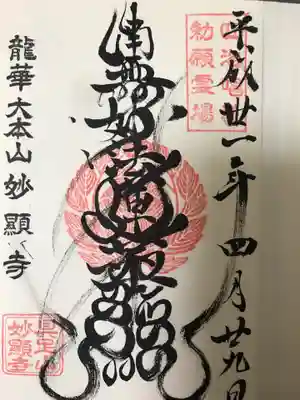 平成卅一年四月廿九日
四海唱導
勅願霊場
南無妙法蓮華経
龍華大本山妙顯寺
妙顯寺